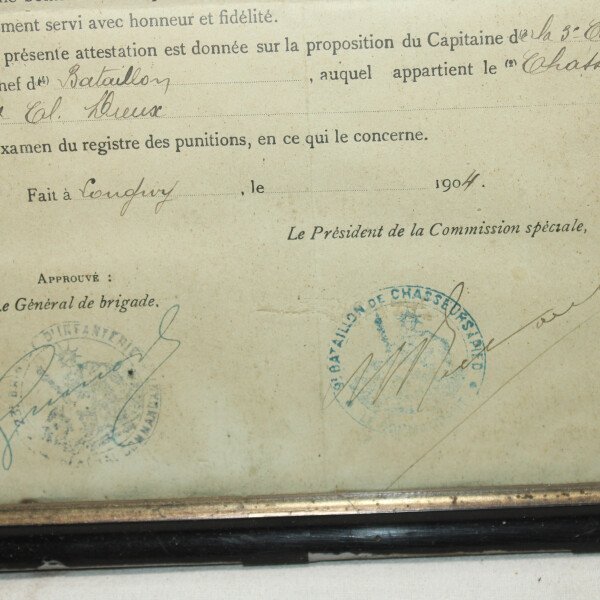 ment servi avec honneur et fidélité.
présente attestation est donnée sur la proposition du Capitaine d(e) la 3e C
hef d(u) Bataillon , auquel appartient le (2) Chass
Cl. Dieux
xamen du registre des punitions, en ce qui le concerne.
Fait à Longwy , le 1904.
Le Président de la Commission spéciale,
APPROUVÉ :
e Général de brigade.
D'INFANTERIE
COMMANDANT
9e BATAILLON DE CHASSEURS A PIED